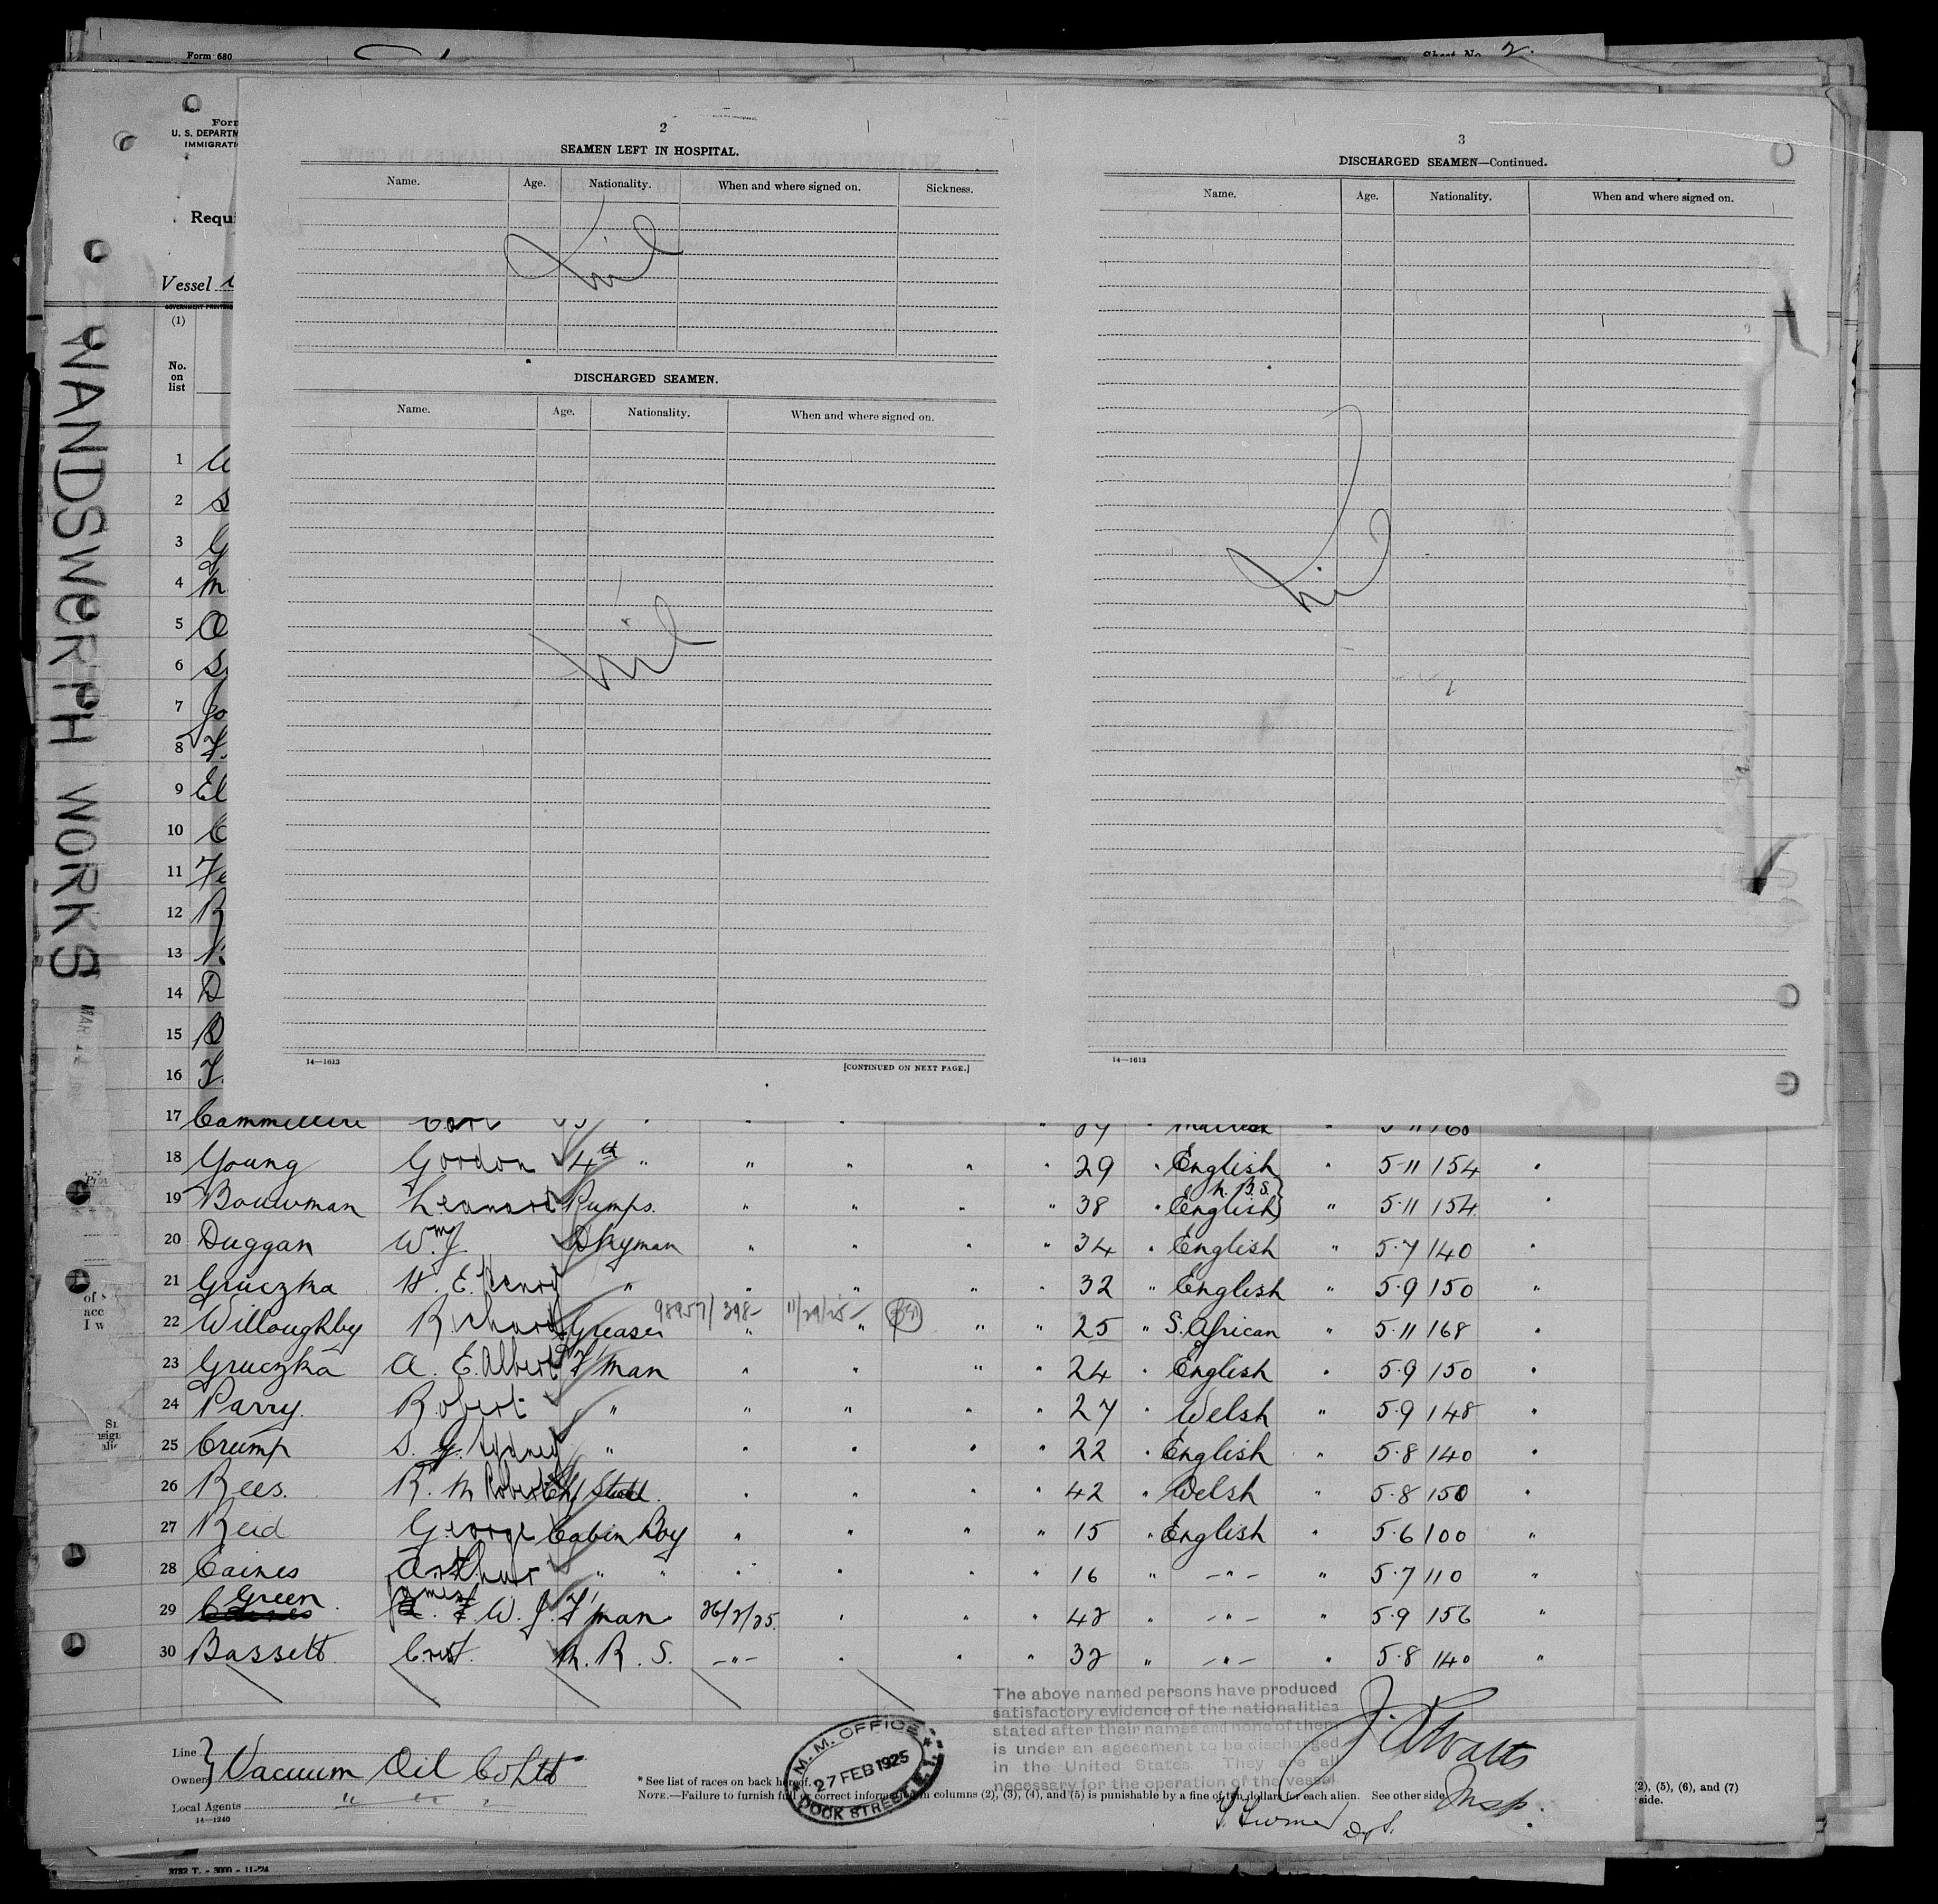 Form 680
Sheet No. 2
Form
U. S. DEPARTM
IMMIGRATI
Requi
Vessel
(1)
No.
on
list
WANDSWORTH WORKS
2
SEAMEN LEFT IN HOSPITAL.
Name. Age. Nationality. When and where signed on. Sickness.
Nil
DISCHARGED SEAMEN.
Name. Age. Nationality. When and where signed on.
Nil
14—1613
[CONTINUED ON NEXT PAGE.]
3
DISCHARGED SEAMEN—Continued.
Name. Age. Nationality. When and where signed on.
Nil
14—1613
1
2 S
3 G
4 M
5
6 S
7 Jo
8
9 El
10 C
11 Fe
12 R
13
14 D
15 B
16
17 Cammilleri Carl
18 Young Gordon 4th " " " " " 29 " English " 5-11 154 "
19 Bouwman Leonard Pumps. " " " " 38 " English N.B.S. " 5.11 154 "
20 Duggan Wm J. Dkyman " " " " 34 " English " 5.7 140 "
21 Gruczka H. E. Henry " " " " " 32 " English " 5.9 150 "
98957/398 11/29/25
22 Willoughby Richard Greaser " " " " 25 " S. African " 5.11 168 "
23 Gruczka A. E. Albert F'man " " " " 24 " English " 5.9 150 "
24 Parry. Robert " " " " " 27 " Welsh " 5.9 148 "
25 Crump S. G. Sydney " " " " " 22 " English " 5.8 140 "
26 Rees. R. M Robert Chf Stwd. " " " " 42 " Welsh " 5.8 150 "
27 Reid George Cabin Boy " " " " 15 " English " 5.6 100 "
28 Caines Arthur " " " " " " 16 " -"- " 5.7 110 "
29 Green James W. J. F'man 26/2/25. " " " 42 " -"- " 5.9 156 "
30 Bassett Crist. R. S. -"- " " " 32 " -"- " 5.8 140 "
The above named persons have produced
satisfactory evidence of the nationalities
stated after their names and none of them
is under an ageecment to be discharged
in the United States. They are all
necessary for the operation of the vessel
Line
Owners
Vacuum Oil Co Ltd
Local Agents " " "
14—1240
M. M. OFFICE
27 FEB 1925
DOCK STREET. E.1.
* See list of races on back hereof.
NOTE.—Failure to furnish full or correct information in columns (2), (3), (4), and (5) is punishable by a fine of ten dollars for each alien. See other side.
Insp.
(2), (5), (6), and (7)
side.
3732 T. - 3000 - 11-'24